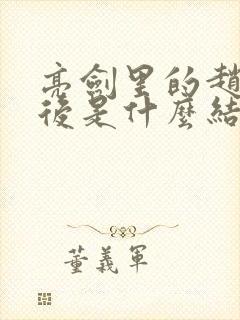 亮劍里的趙
後是什麼結
董義軍